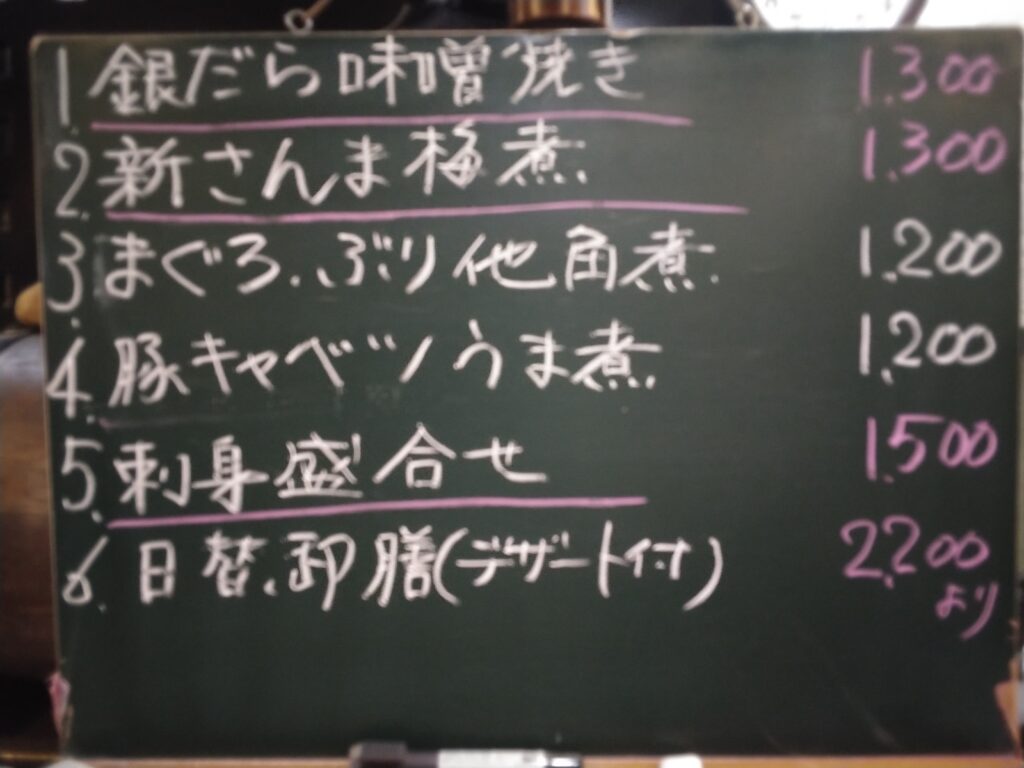 1. 銀だら味噌焼き 1.300
2. 新さんま梅煮 1.300
3. まぐろ.ぶり他角煮 1.200
4. 豚キャベツうま煮 1.200
5. 刺身盛合せ 1.500
6. 日替.卸膳(デザート付) 2.200
より